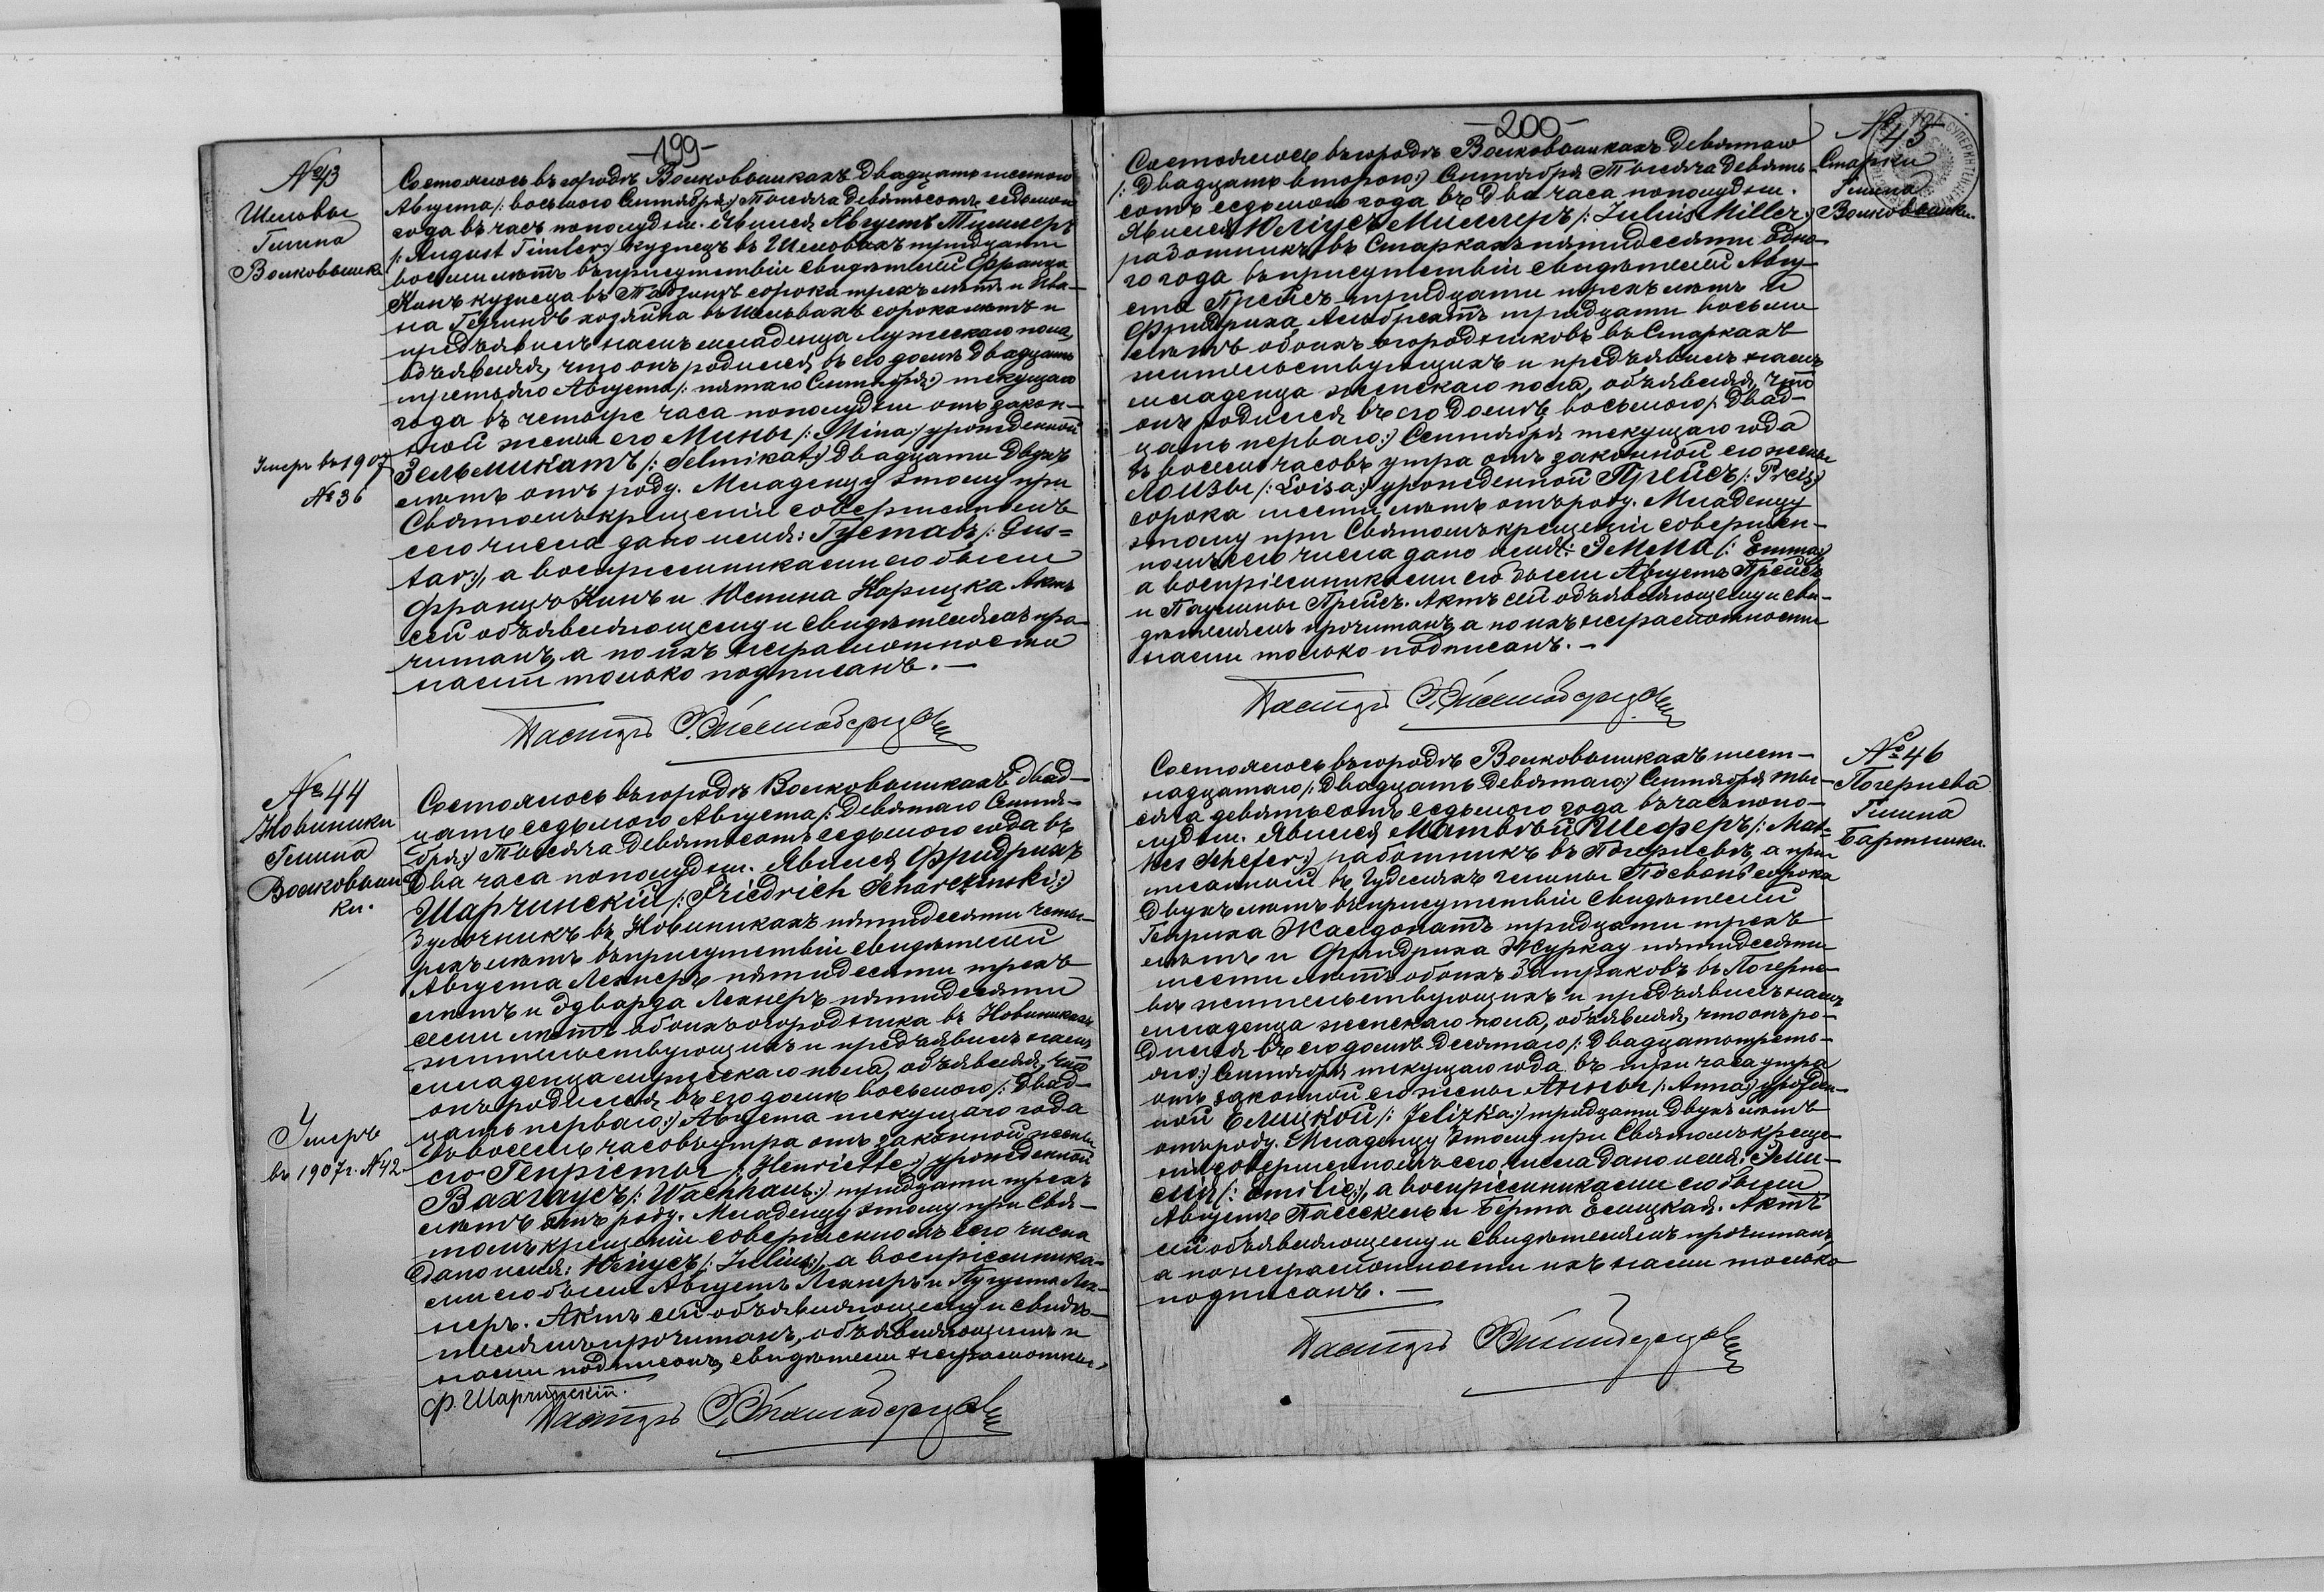 -199-
№43
Шельвы
Гмина
Волковышки
Состоялось въ городѣ Волковышкахъ двадцать шестого
Августа /: восьмого Сентября :/ тысяча девятьсотъ седьмого
года въ часъ пополудни. Явился Августъ Тимлеръ
/: August Timler :/ кузнецъ въ Шельвахъ тридцати
восьми лѣтъ въ присутствіи свидѣтелей Франца
Кинъ кузнеца въ сорока трехъ лѣтъ и Ива-
на хозяина въ Шельвахъ сорока лѣтъ и
предъявилъ намъ младенца мужескаго пола,
объявляя, что онъ родился въ его домѣ двадцать
третьяго Августа /: пятаго Сентября :/ текущаго
года въ четыре часа пополудни отъ закон-
ной жены его Мины /: Mina :/ урожденной
Зельмикатъ /: Selmikat :/ двадцати двухъ
лѣтъ отъ роду. Младенцу этому при
Святомъ крещеніи совершенномъ
сего числа дано имя: Густавъ /: Gus=
tav :/, а воспріемниками его были
Францъ Кинъ и Юстина Нарицка. Актъ
сей объявляющему и свидѣтелямъ про-
читанъ, а по ихъ неграмотности
нами только подписанъ. —
Умеръ въ 1907
№ 36
Пасторъ
№ 44
Новиники
Гмина
Волковыш-
ки.
Состоялось въ городѣ Волковышкахъ двад-
цать седьмого Августа /: девятаго Сентя-
бря :/ тысяча девятьсотъ седьмого года въ
два часа пополудни. Явился Фридрихъ
Шарчинскій /: Friedrich Scharczinski :/
булочникъ въ Новиникахъ пятидесяти четы-
рехъ лѣтъ въ присутствіи свидѣтелей
Августа Лехнеръ пятидесяти трехъ
лѣтъ и Эдварда Лехнеръ пятидесяти
семи лѣтъ обоихъ огородника въ Новиникахъ
жительствующихъ и предъявилъ намъ
младенца мужескаго пола, объявляя, что
онъ родился въ его домѣ восьмого /: двад-
цать перваго :/ Августа текущаго года
въ восемь часовъ утра отъ законной жены
его Генріеты /: Henriette :/ урожденной
Вахгаусъ /: Wachhaus :/ тридцати трехъ
лѣтъ отъ роду. Младенцу этому при Свя-
томъ крещеніи совершенномъ сего числа
дано имя: Юліусъ /: Julius :/, а воспріемника-
ми его были Августъ Лехнеръ и Аугуста Лех-
неръ. Актъ сей объявляющему и свидѣ-
телямъ прочитанъ, объявляющимъ и
нами подписанъ, свидѣтели неграмотны.
Умеръ
въ 1907 г. №42.
Ф. Шарчинскій.
Пасторъ
-200-
№ 45
Старки
Гмина
Волковышки.
Состоялось въ городѣ Волковышкахъ девятаго
/: двадцать второго :/ Сентября тысяча девять-
сотъ седьмого года въ два часа пополудни.
Явился Юліусъ Миллеръ /: Julius Miller :/
работникъ въ Старкахъ пятидесяти одно-
го года въ присутствіи свидѣтелей Авгу-
ста Прейсъ тридцати трехъ лѣтъ и
Фридриха Альбрехтъ тридцати восьми
лѣтъ обоихъ огородниковъ въ Старкахъ
жительствующихъ и предъявилъ намъ
младенца женскаго пола, объявляя, что
онъ родился въ его домѣ восьмого /: двад-
цать перваго :/ Сентября текущаго года
въ восемь часовъ утра отъ законной его жены
Лоизы /: Loisa :/ урожденной Прейсъ /: Preis :/
сорока шести лѣтъ отъ роду. Младенцу
этому при Святомъ крещеніи совершен-
номъ сего числа дано имя: Эмма /: Emma :/
а воспріемниками его были Августъ Прейсъ
и Паулины Прейсъ. Актъ сей объявляющему и сви-
дѣтелямъ прочитанъ, а по ихъ неграмотности
нами только подписанъ. —
Пасторъ
№ 46
Погернева
Гмина
Бартники.
Состоялось въ городѣ Волковышкахъ шест-
надцатаго /: двадцать девятаго :/ Сентября ты-
сяча девятьсотъ седьмого года въ часъ попо-
лудни. Явился Матвѣй Шеферъ /: Mat=
hes Schefer :/ работникъ въ Погерневѣ, а при-
писанный въ гмины сорока
двухъ лѣтъ въ присутствіи свидѣтелей
Генриха Жалдонатъ тридцати трехъ
лѣтъ и Фридриха Журкау пятидесяти
шести лѣтъ обоихъ батраковъ въ Погерне-
вѣ жительствующихъ и предъявилъ намъ
младенца женскаго пола, объявляя, что онъ ро-
дился въ его домѣ десятаго /: двадцать треть-
яго :/ Сентября текущаго года въ три часа утра
отъ законной его жены Анны /: Anna :/ урожден-
ной Елицкой /: Jelizka :/ тридцати двухъ лѣтъ
отъ роду. Младенцу этому при Святомъ креще-
ніи совершенномъ сего числа дано имя: Эми-
лія /: Emilie :/, а воспріемниками его были
Августъ и Берта Елицкая. Актъ
сей объявляющему и свидѣтелямъ прочитанъ,
а по неграмотности ихъ нами только
подписанъ. —
Пасторъ